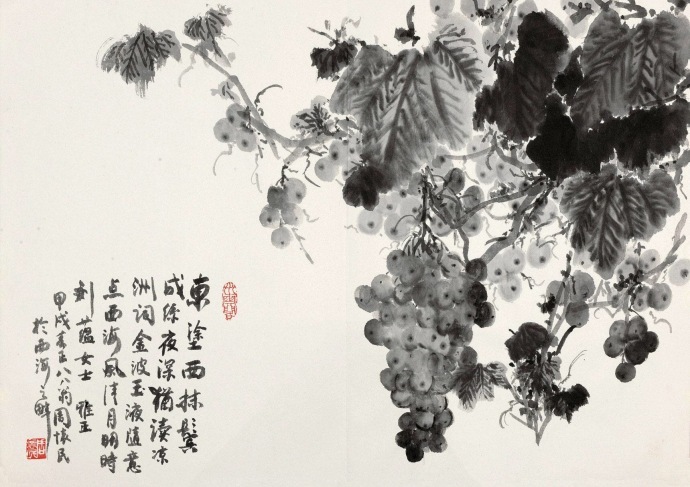 東塗西抹鬓
成絲夜深猶讀凉
洲词金波玉液隨意
点西海風清月明時
刘蕴女士雅正
甲戌春正八八翁周懷民
於西海之畔